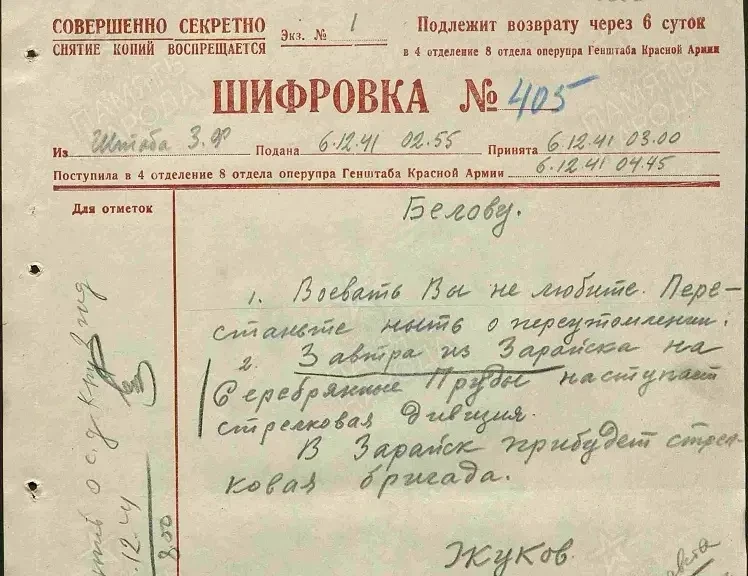 СОВЕРШЕННО СЕКРЕТНО
СНЯТИЕ КОПИЙ ВОСПРЕЩАЕТСЯ
Экз. № 1
Подлежит возврату через 6 суток
в 4 отделение 8 отдела оперупра Генштаба Красной Армии
ШИФРОВКА № 405
Из Штаба З.Ф. Подана 6.12.41 02.55 Принята 6.12.41 03.00
Поступила в 4 отделение 8 отдела оперупра Генштаба Красной Армии 6.12.41 04.45
Для отметок
Белову.
1. Воевать Вы не любите. Пере-
станьте ныть о переутомлении.
2. Завтра из Зарайска на
Серебрянные Пруды наступает
стрелковая дивизия.
В Зарайск прибудет стрел-
ковая бригада.
Жуков